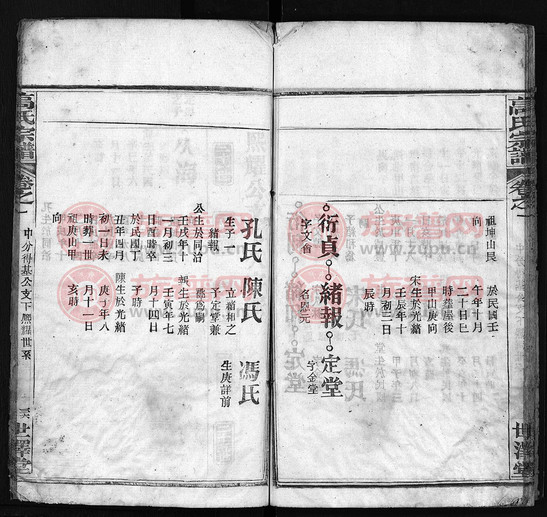 高氏宗譜
卷之一
世澤堂
祖坤山艮
向
於民國壬
午年十月
二十日巳
時葬屋後
甲山庚向
宋生於光緒
壬辰年十
月初三日
辰時
衍貞 緒報 定堂
字文
字金堂
孔氏 陳氏 馮氏
生子一
緒報
立緒和之
子定堂兼
祧為嗣
生庚詳前
公生於同治
壬戌年十
一月初三
日酉時卒
於民國丁
丑年四月
初一日未
時葬一世
祖庚山甲
向
報生於光緒
壬寅年七
月十四日
子時
陳生於光緒
年八
月十一日
亥時
高氏宗譜
卷之一
中分得基公支下熙
世系
世澤堂